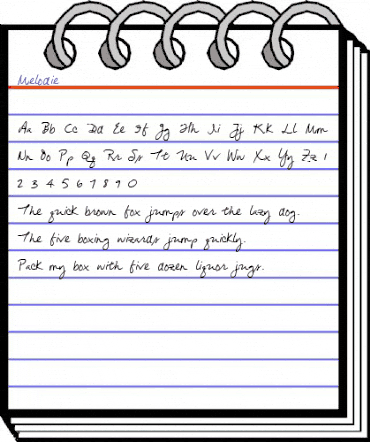 Melodie
Aa Bb Cc Dd Ee Ff Gg Hh Ii Jj Kk Ll Mm
Nn Oo Pp Qq Rr Ss Tt Uu Vv Ww Xx Yy Zz 1
2 3 4 5 6 7 8 9 0
The quick brown fox jumps over the lazy dog.
The five boxing wizards jump quickly.
Pack my box with five dozen liquor jugs.